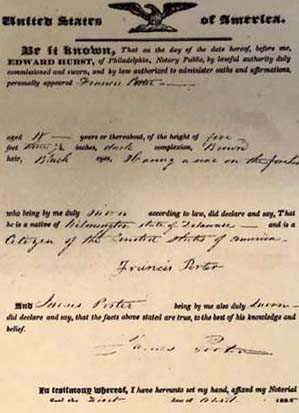 United States of America.
Be it known, That on the day of the date hereof, before me,
EDWARD HURST, of Philadelphia, Notary Public, by lawful authority duly
commissioned and sworn, and by law authorized to administer oaths and affirmations,
personally appeared Francis Porter
aged 18 years or thereabout, of the height of five
feet inches, dark complexion, Brown
hair, Black eyes, Having a scar on the
who being by me duly sworn according to law, did declare and say, That
he is a native of Wilmington State of Delaware and is a
Citizen of the United States of America.
Francis Porter
And James Porter being by me also duly Sworn
did declare and say, that the facts above stated are true, to the best of his knowledge and
belief.
James Porter
In testimony whereof, I have hereunto set my hand, affixed my Notarial
Seal the First day of